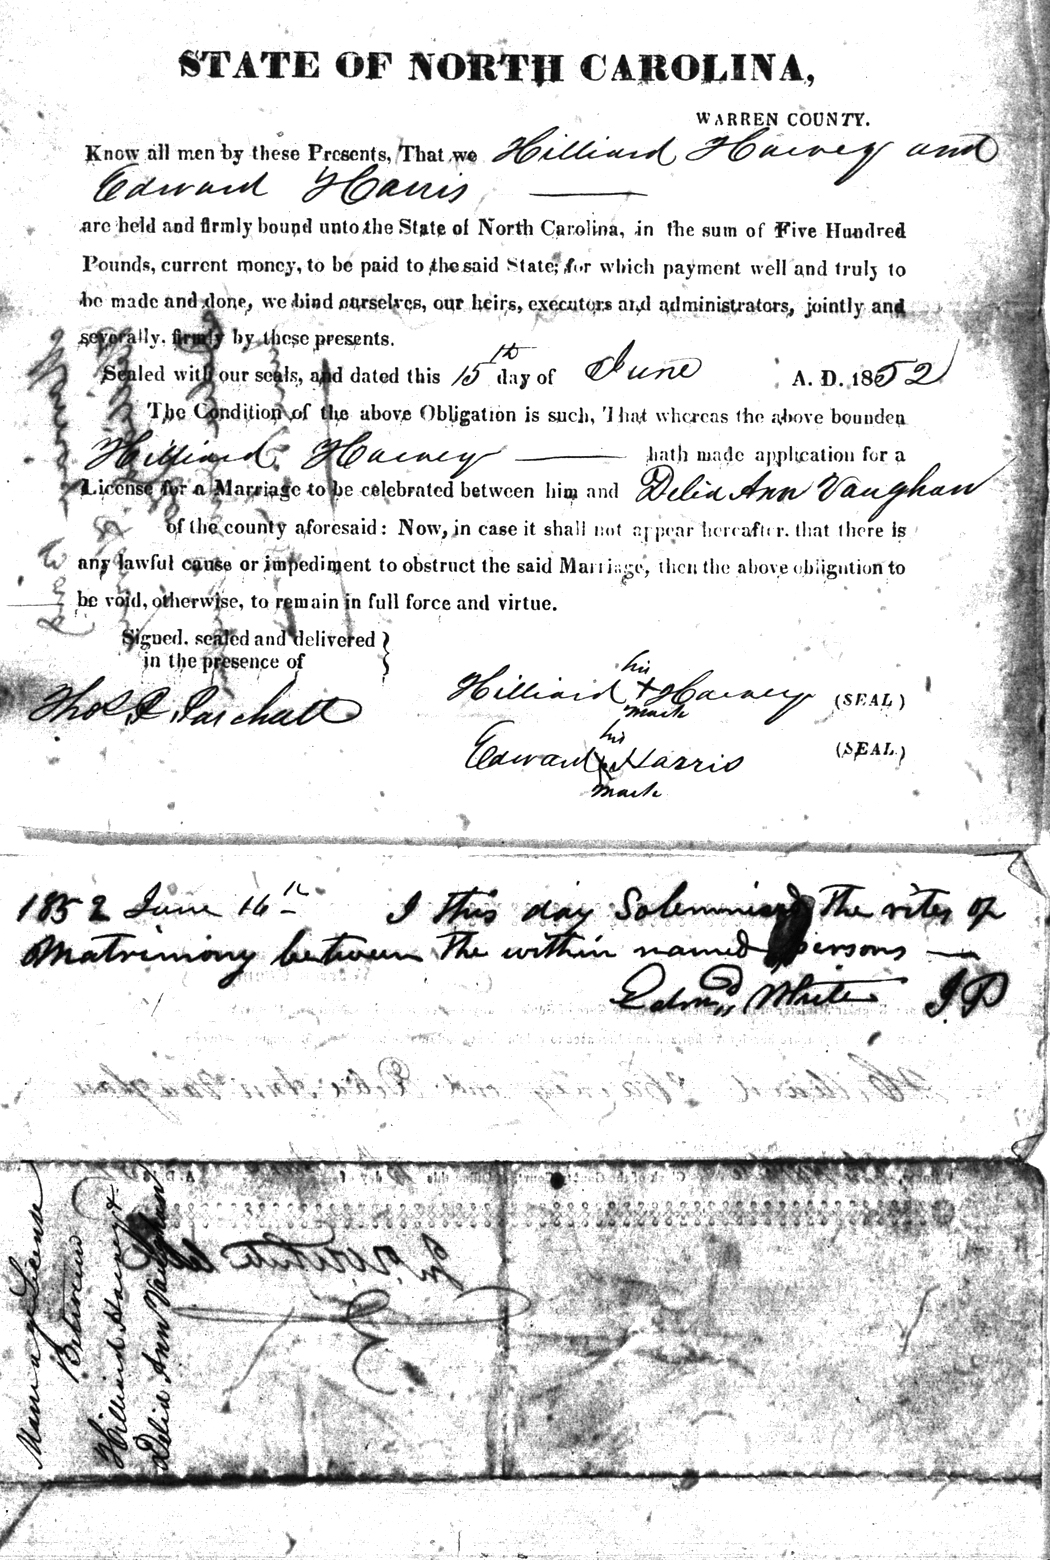 STATE OF NORTH CAROLINA,
WARREN COUNTY.
Know all men by these Presents, That we Hilliard Harvey and
Edward Harris
are held and firmly bound unto the State of North Carolina, in the sum of Five Hundred
Pounds, current money, to be paid to the said State; for which payment well and truly to
be made and done, we bind ourselves, our heirs, executors and administrators, jointly and
severally, firmly by these presents.
Sealed with our seals, and dated this 15th day of June A. D. 1852
The Condition of the above Obligation is such, That whereas the above bounden
Hilliard Harvey hath made application for a
License for a Marriage to be celebrated between him and Delia Ann Vaughan
of the county aforesaid: Now, in case it shall not appear hereafter, that there is
any lawful cause or impediment to obstruct the said Marriage, then the above obligation to
be void, otherwise, to remain in full force and virtue.
Signed, sealed and delivered
in the presence of
his
Hilliard + Harvey (SEAL)
mark
Thos P. Paschall
his
Edward x Harris (SEAL)
mark
1852 June 16th I this day Solemnised the rites of
Matrimony between the within named persons —
Edmd White J P
Marriage License
Between
Hilliard Harvey &
Delia Ann Vaughan